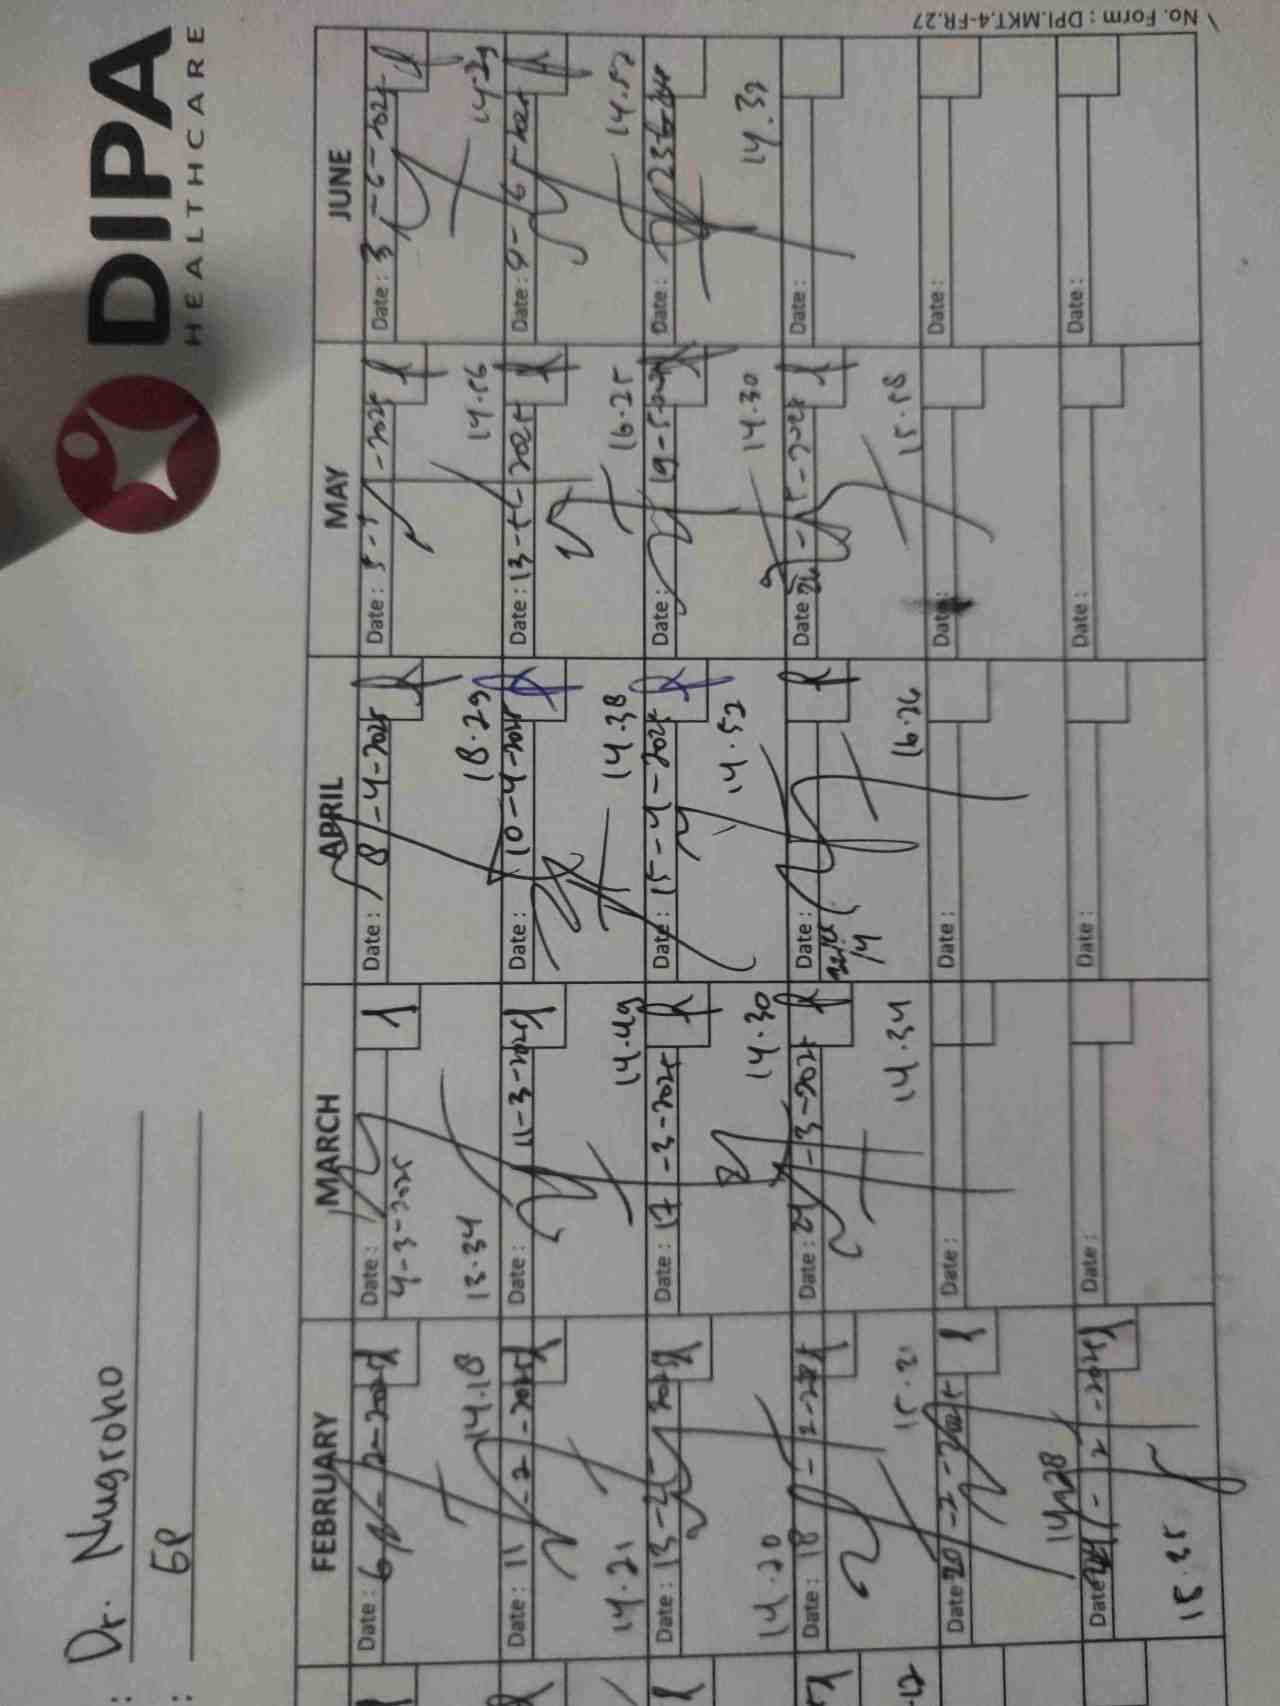 DIPA
HEALTHCARE
: Dr. Nugroho
: GP
FEBRUARY MARCH APRIL MAY JUNE
Date : 6 - 2 - 2025
14.18
Date :
4-3-2025
13.34
Date : 8-4-2025
18.29
Date : 5-5-2025
14.56
Date : 3-6-2025
14.29
Date : 11-2-2025
14.21
Date : 11-3-2025
14.49
Date : 10-4-2025
14.38
Date : 13-5-2025
16.25
Date : 9-6-2025
14.52
Date : 13-2-2025
14.20
Date : 17-3-2025
14.30
Date : 15-4-2025
14.52
Date : 19-5-2025
14.30
Date : 23-6-
14.39
Date : 18-2-2025
15.21
Date : 24-3-2025
14.34
Date :
16.26
Date : 26-5-2025
15.58
Date :
Date : 20-2-2025
14.28
Date :
Date :
Date :
Date :
Date : 24-2-2025
15.35
Date :
Date :
Date :
Date :
No. Form : DPI.MKT.4-FR.27